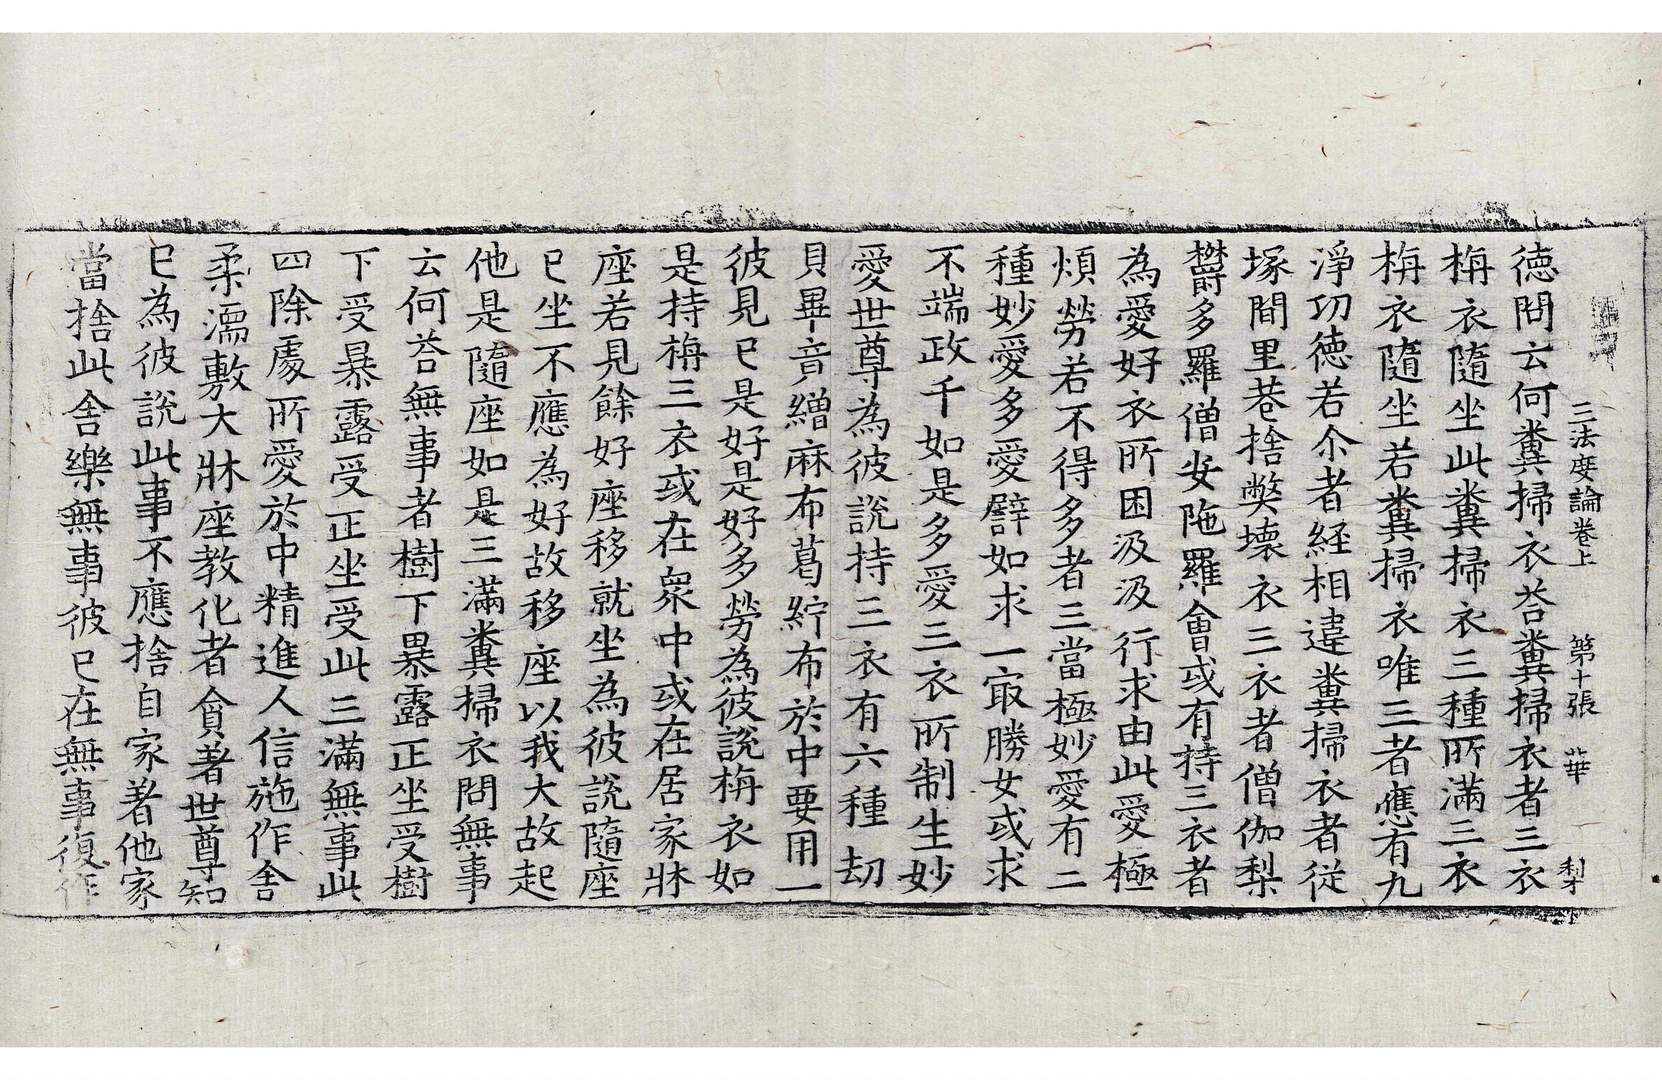 三法度論卷上　第十張　華　
德問云何糞掃衣荅糞掃衣者三衣
栴衣隨坐此糞掃衣三種所滿三衣
栴衣隨坐若糞掃衣唯三者應有九
淨功德若尒者經相違糞掃衣者從
塚間里巷捨弊壞衣三衣者僧伽梨
欝多羅僧安陁羅會或有持三衣者
為愛好衣所困汲汲行求由此愛極
煩勞若不得多者三當極妙愛有二
種妙愛多愛譬如求一㝡勝女或求
不端政千如是多愛三衣所制生妙
愛世尊為彼說持三衣有六種劫
貝畢音繒麻布葛紵布於中要用一
彼見已是好是好多勞為彼說栴衣如
是持栴三衣或在衆中或在居家牀
座若見餘好座移就坐為彼說隨座
已坐不應為好故移座以我大故起
他是隨座如是三滿糞掃衣問無事
云何荅無事者樹下暴露正坐受樹
下受暴露受正坐受此三滿無事此
四除處所愛於中精進人信施作舍
柔濡敷大牀座教化者貪著世尊知
已為彼說此事不應捨自家著他家
當捨此舍樂無事彼已在無事復作